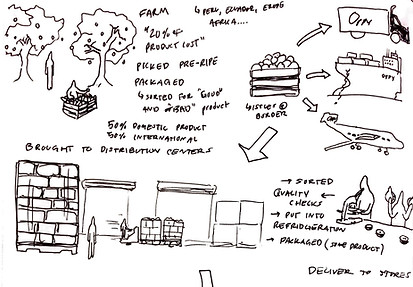 FARM
↳ PERU, ECUADOR, EUROPE
AFRICA....
"20% OF
PRODUCT COST"
PICKED PRE-RIPE
PACKAGED
↳ SORTED FOR "GOOD"
AND "BAD" PRODUCT
50% DOMESTIC PRODUCT
50% INTERNATIONAL
BROUGHT TO DISTRIBUTION CENTERS
BORDER
→ SORTED
QUALITY ←
CHECKS
→ PUT INTO
REFRIDGERATION
→ PACKAGED (SOME PRODUCT)
DELIVER TO STORES